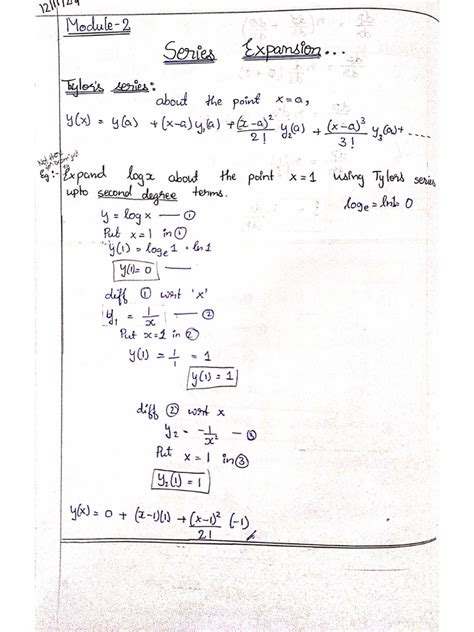 12/11/24
Module-2
Series Expansion...
Tylor's series:
about the point x=a,
y(x) = y(a) + (x-a) y₁(a) + (x-a)²/2! y₂(a) + (x-a)³/3! y₃(a)+ .....
Eg:- Expand logx about the point x=1 using Tylors series
upto second degree terms.
y = logx — ①
Put x=1 in ①
y(1) = logₑ1 = ln1
y(1)=0 —
diff ① wrt 'x'
y₁ = 1/x — ②
Put x=1 in ②
y(1) = 1/1 = 1
y(1) = 1
diff ② wrt x
y₂ = -1/x² — ③
Put x = 1 in ③
y₂(1) = 1
y(x) = 0 + (x-1)(1) + (x-1)²/2! (-1)